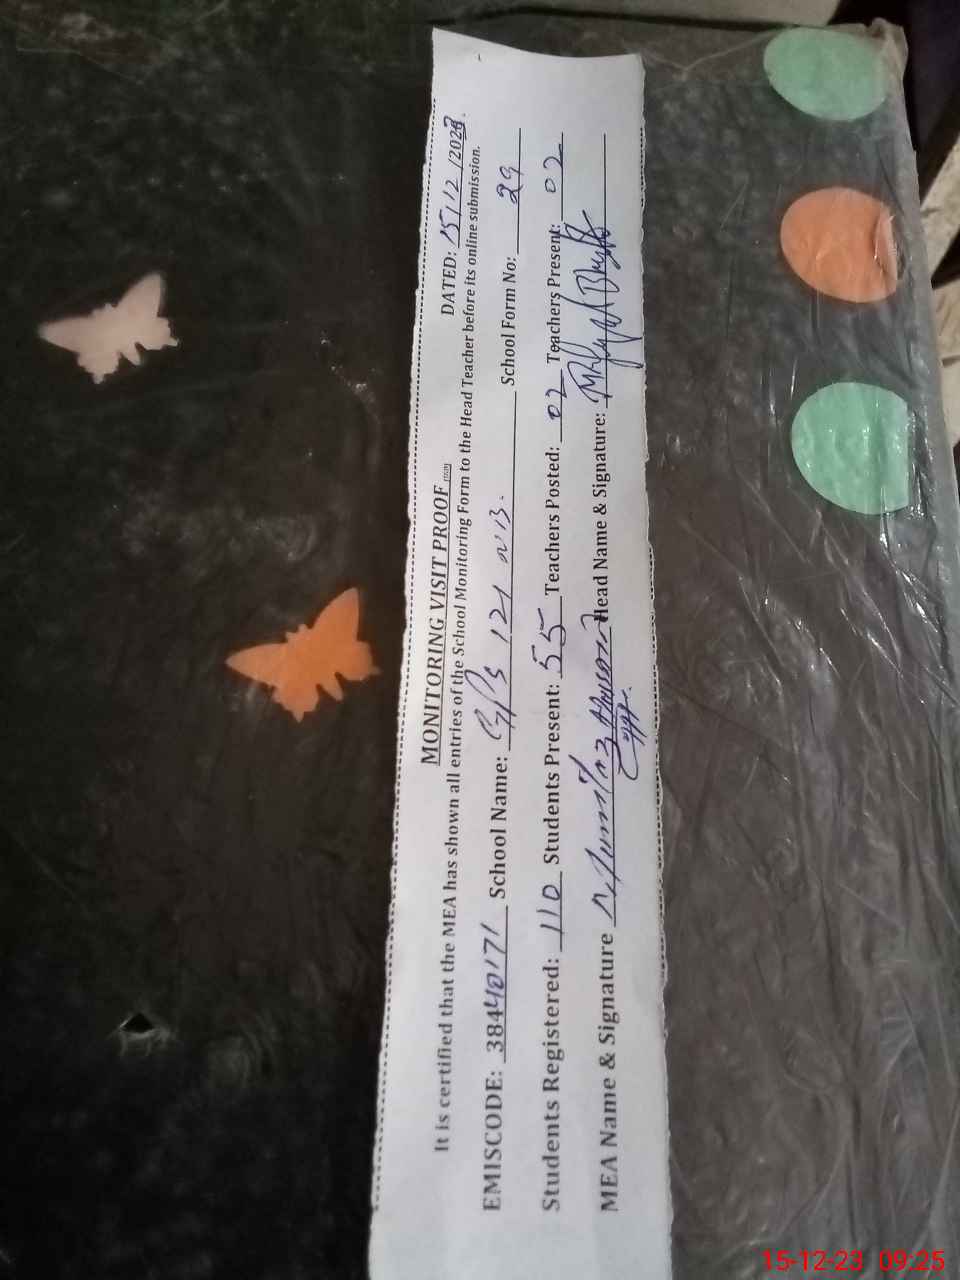 MONITORING VISIT PROOF DATED: 15/12/2023
It is certified that the MEA has shown all entries of the School Monitoring Form to the Head Teacher before its online submission.
EMISCODE: 38440171 School Name: 121 School Form No: 29
Students Registered: 110 Students Present: 55 Teachers Posted: 02 Teachers Present: 02
MEA Name & Signature Head Name & Signature:
15-12-23 09:25